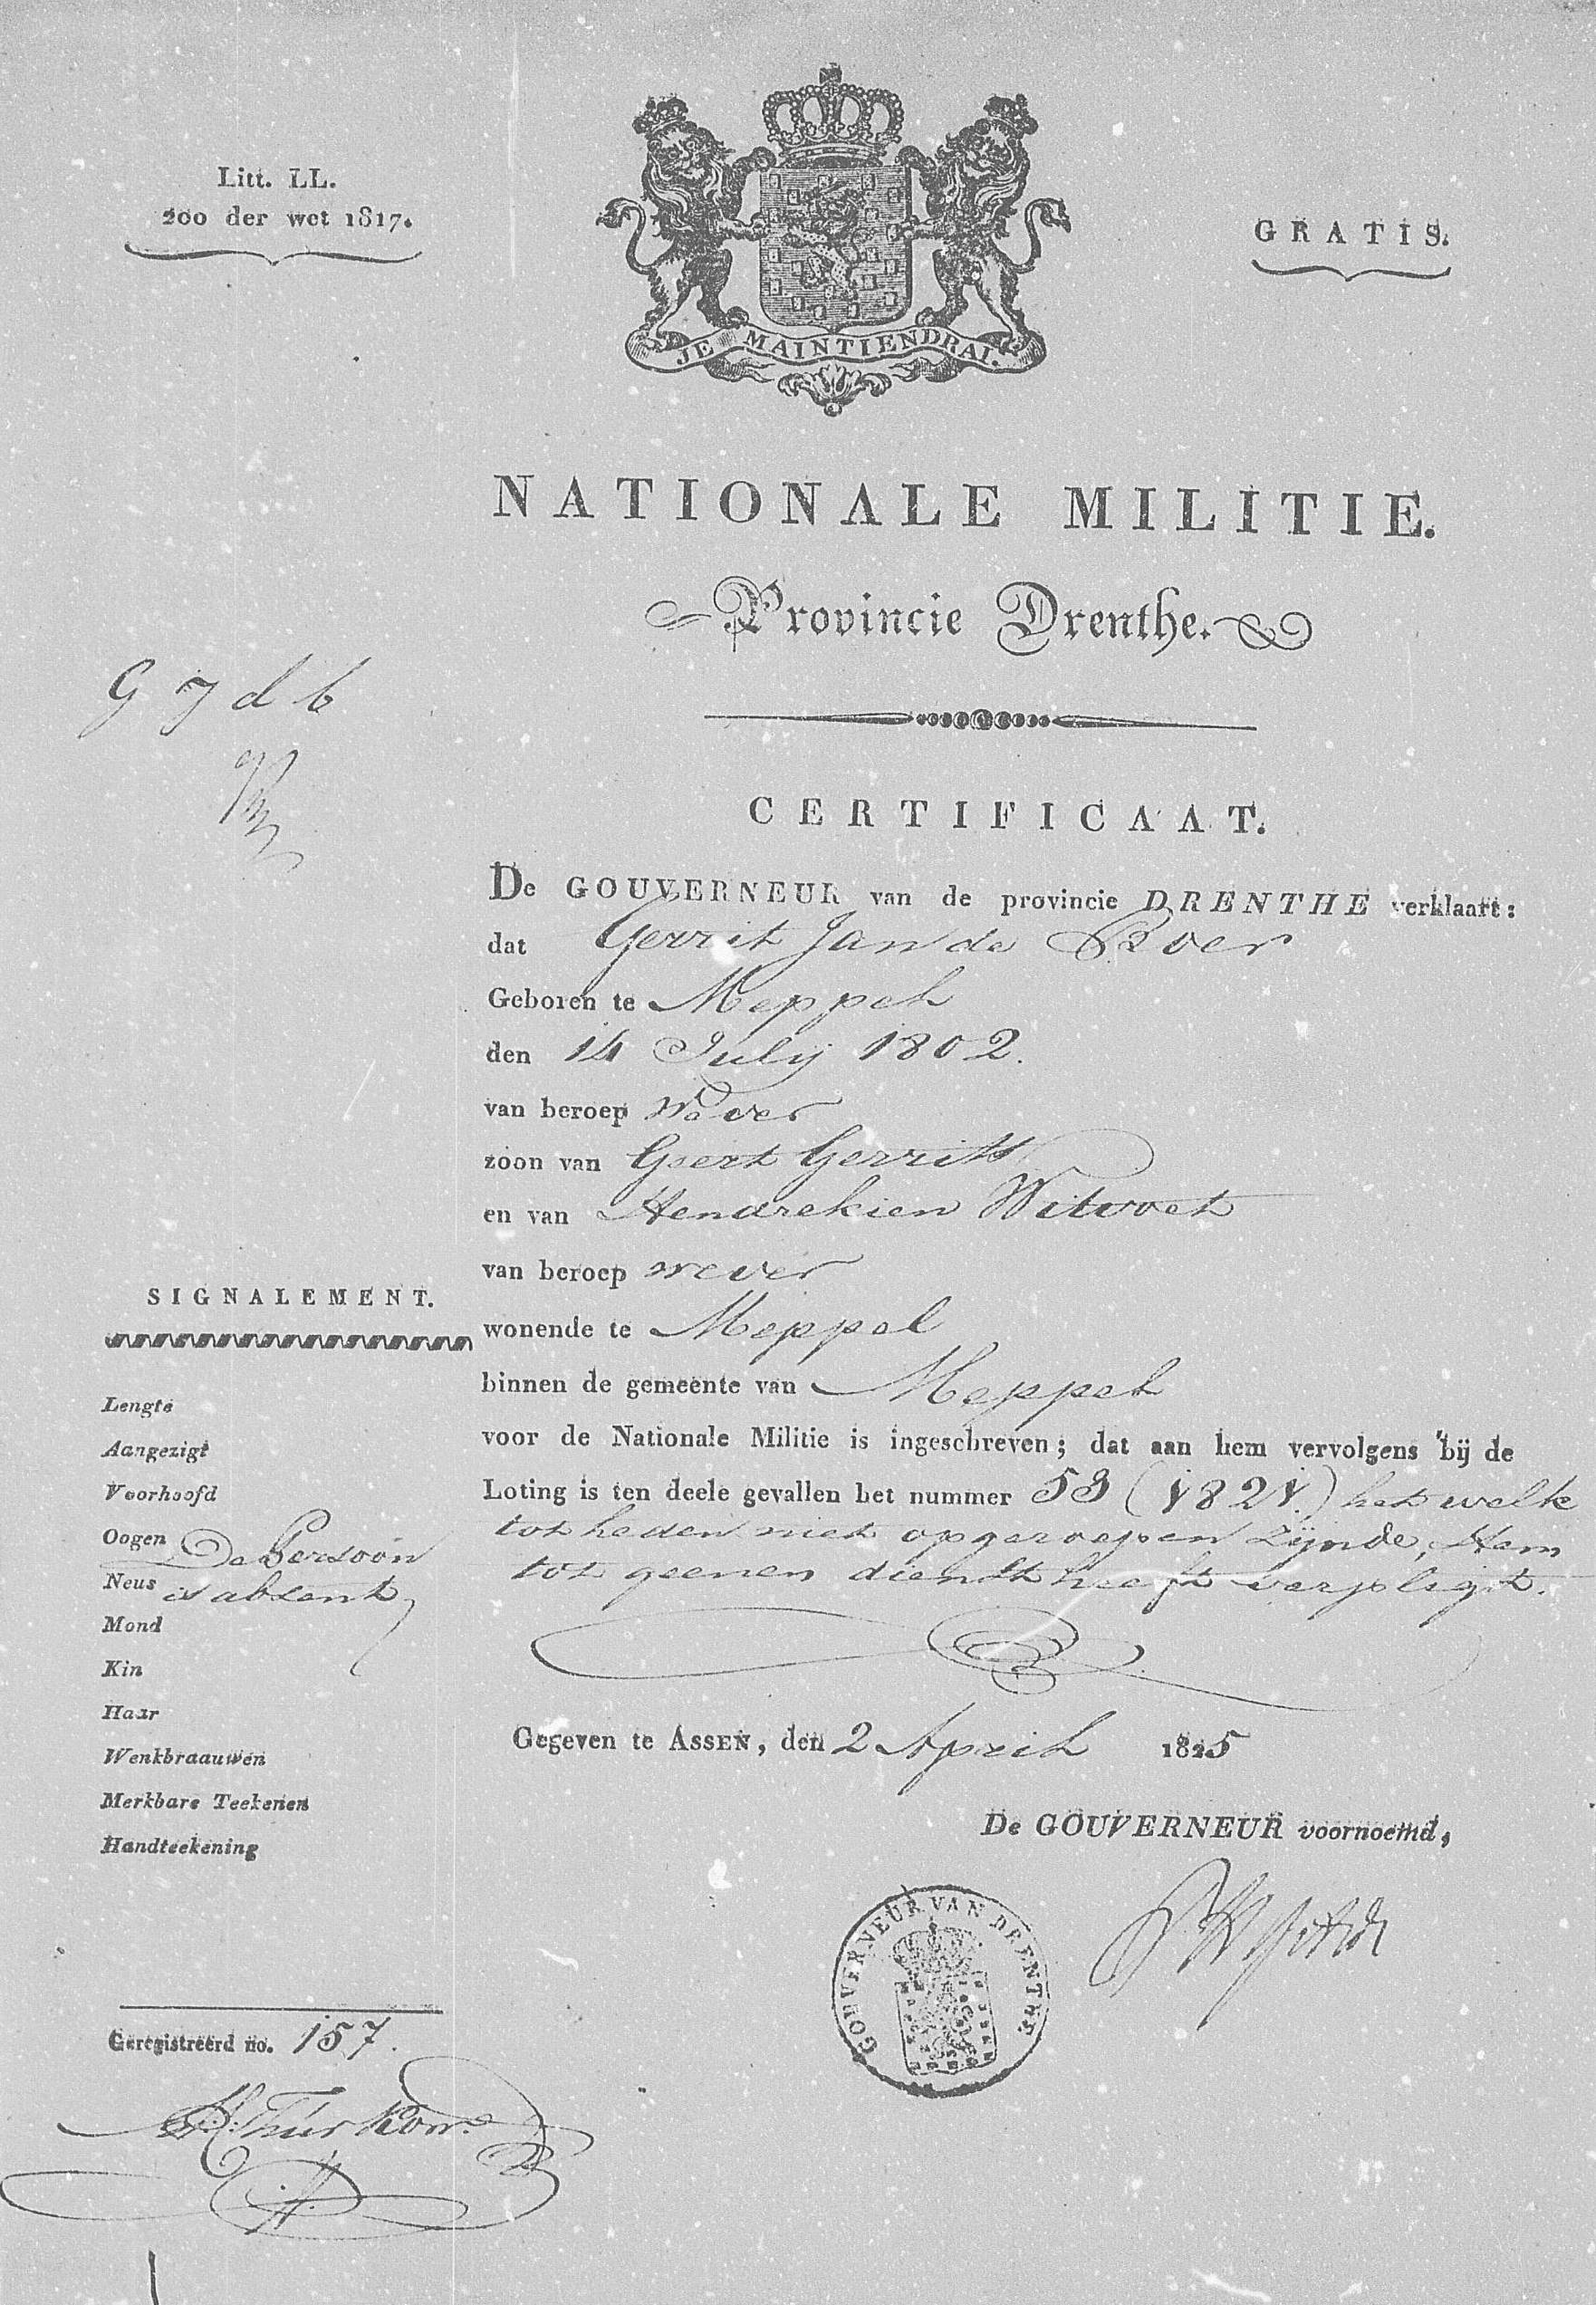 Litt. LL.
200 der wet 1817.
GRATIS.
JE MAINTIENDRAI.
NATIONALE MILITIE.
Provincie Drenthe.
G J d b
CERTIFICAAT.
De GOUVERNEUR van de provincie DRENTHE verklaart:
dat Gerrit Jan de Boer
Geboren te Meppel
den 14 July 1802.
van beroep Wever
zoon van Geert Gerrits
en van Hendrekien Witvoet
van beroep wever
wonende te Meppel
binnen de gemeente van Meppel
voor de Nationale Militie is ingeschreven; dat aan hem vervolgens bij de
Loting is ten deele gevallen het nummer 53 (1821.) het welk
tot heden niet opgeroepen zijnde, Hem
tot geenen dienst heeft verpligt.
Gegeven te ASSEN, den 2 April 1825
De GOUVERNEUR voornoemd,
GOUVERNEUR VAN DRENTHE
SIGNALEMENT.
Lengte
Aangezigt
Voorhoofd
Oogen De Persoon
Neus is absent
Mond
Kin
Haar
Wenkbraauwen
Merkbare Teekenen
Handteekening
Geregistreerd no. 157.